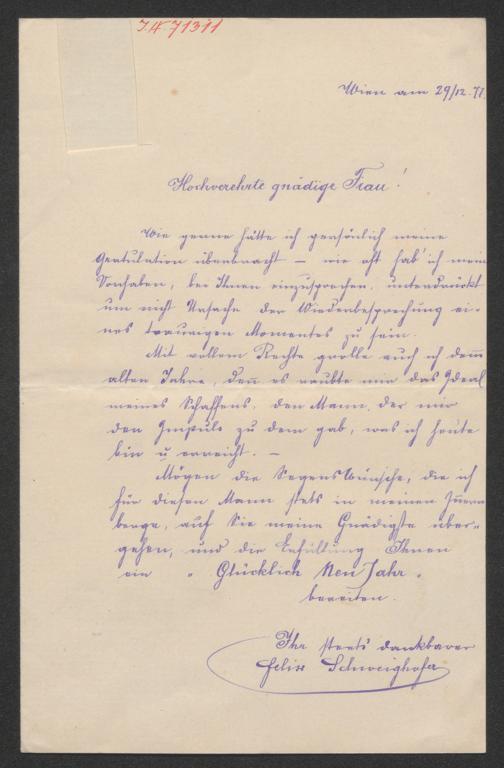 I.N. 71311
Wien am 29/12. 77.
Hochverehrte gnädige Frau!
Wie gerne hätte ich persönlich meine
Gratulation überbracht – wie oft hab' ich mein
Vorhaben, bei Ihnen einzusprechen, unterdrückt
um nicht Ursache der Wiederbesprechung ei-
nes traurigen Momentes zu sein.
Mit vollem Rechte grolle auch ich dem̅
alten Jahre, den̅ es raubte mir das Ideal
meines Schaffens, den Mann, der mir
den Impuls zu dem gab, was ich heute
bin u erreicht. –
Mögen die Segens Wünsche, die ich
für diesen Mann stets in meinen Innern
berge, auf Sie meine Gnädigste über-
gehen, und die Erfüllung Ihnen
ein „ Glücklich Neu Jahr „
bereiten.
Ihr stets dankbarer
Felix Schweighofer